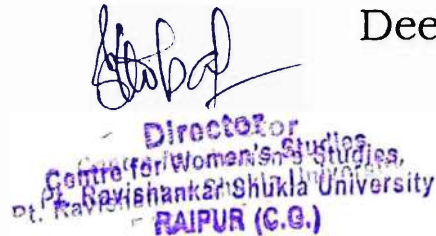 Dee
Director
Centre for Women's Studies,
Pt. Ravishankar Shukla University
RAIPUR (C.G.)